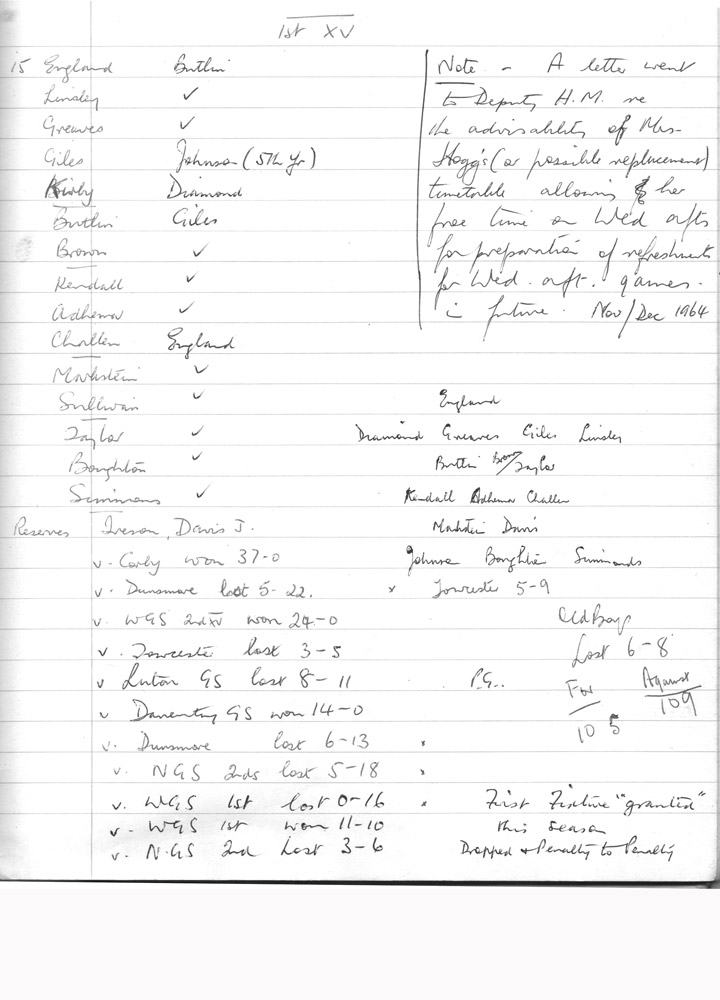 1st XV
15 England Butlin
Linsley ✓
Greaves ✓
Giles Johnson (5th Yr)
Kirby Diamond
Butlin Giles
Brown ✓
Kendall ✓
Adhemar ✓
Challen England
Markstein ✓
Sullivan ✓
Taylor ✓
Boughton ✓
Simmons ✓
Reserves Ireson, Davis J.
Note - A letter went
to Deputy H.M. re
the advisability of Mrs
Hogg's (or possible replacement)
timetable allowing her
free time on Wed afts
for preparation of refreshments
for Wed. aft. games.
in future. Nov/Dec 1964
England
Diamond Greaves Giles Linsley
Butlin Brown/Taylor
Kendall Adhemar Challen
Markstein Davis
Johnson Boughton Simmonds
v. Corby won 37-0
v. Dunsmore lost 5-22. x Towcester 5-9
v. WGS 2nd XV won 24-0
v. Towcester lost 3-5
v Luton GS lost 8-11 P.G..
v Daventry GS won 14-0
v. Dunsmore lost 6-13 x
v. NGS 2nds lost 5-18 x
v. WGS 1st lost 0-16 x First Fixture "granted"
v. WGS 1st won 11-10 this season
v. NGS 2nd Lost 3-6 Dropped + Penalty to Penalty
Old Boys
Lost 6-8
For Against
105 109